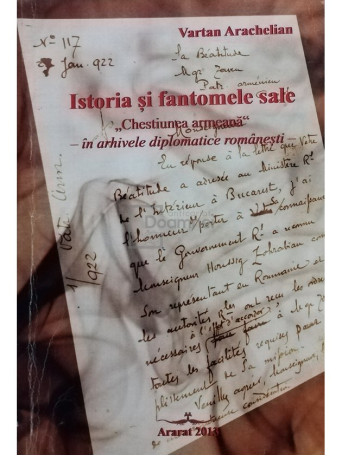 Vartan Arachelian
Nº 117
7 Jan. 922
Sa Béatitude
Mgr Zaven
Patr. arménien
Istoria și fantomele sale
„Chestiunea armeană“
– în arhivele diplomatice românești –
Monseigneur
En réponse à la lettre que Votre
Béatitude a adressée au Ministère Rl
de l'Intérieur à Bucarest, j'ai
l'honneur porter à connaissance
que le Gouvernement Rl a reconnu
Monseigneur Housseg Zohrabian comme
Son représentant en Roumanie et
les autorités Rles ont reçu les ordres
nécessaires
toutes les facilités requises pour
de sa mission.
Veuillez agréer, Monseigneur,
considération
1/922
Ararat